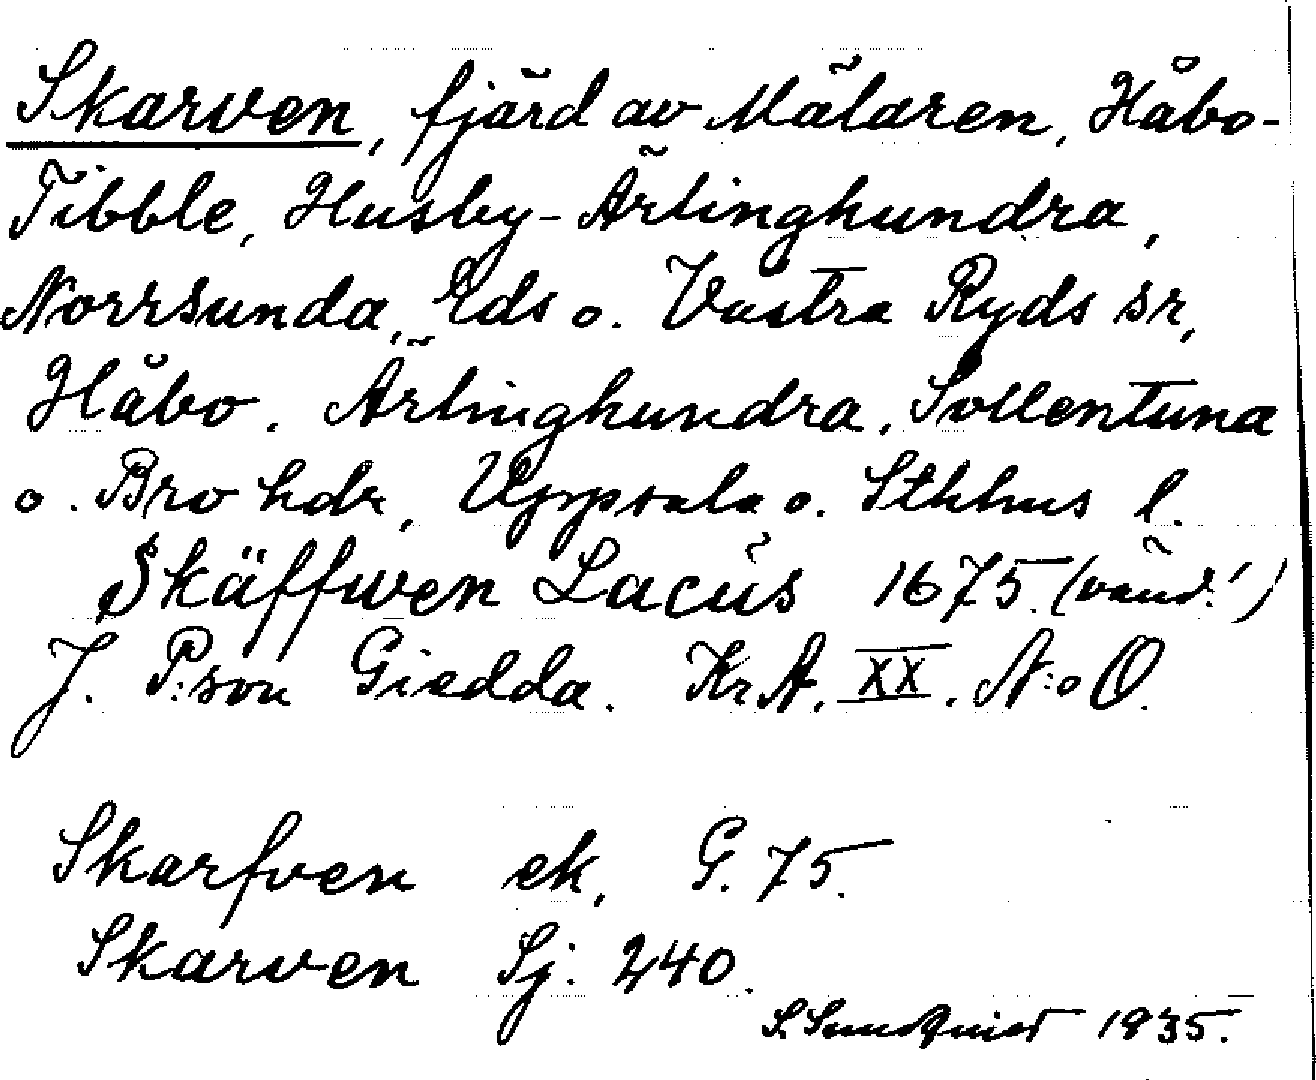 Skarven, fjärd av Mälaren, Håbo-
Tibble, Husby-Ärlinghundra,
Norrsunda, Eds o. Västra Ryds sr,
Håbo, Ärlinghundra, Sollentuna
o. Bro hdr, Uppsala o. Sthlms l.
Skäffwen Lacus 1675 (vänd!)
J. P:son Giedda. KrA. XX. N:o O.
Skarfven ek. G. 75.
Skarven Sj. 240.
S. Sundquist 1935.